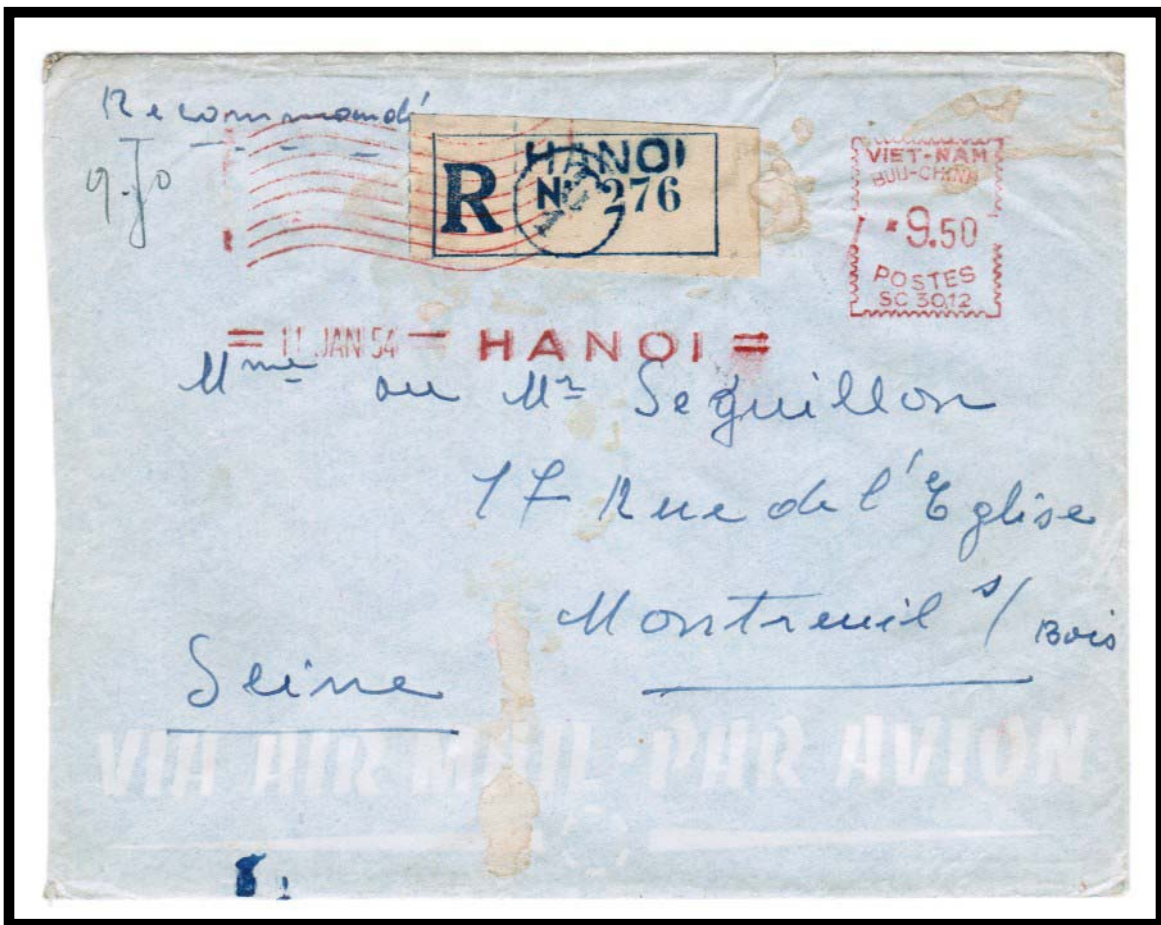 Recommandé
9.50
R HANOI
No 276
VIET-NAM
BUU-CHINH
9.50
POSTES
SC 3012
= 11 JAN 54 = HANOI =
Mme ou Mr Seguillon
17 Rue de l'Eglise
Montreuil s/ Bois
Seine
VIA AIR MAIL - PAR AVION